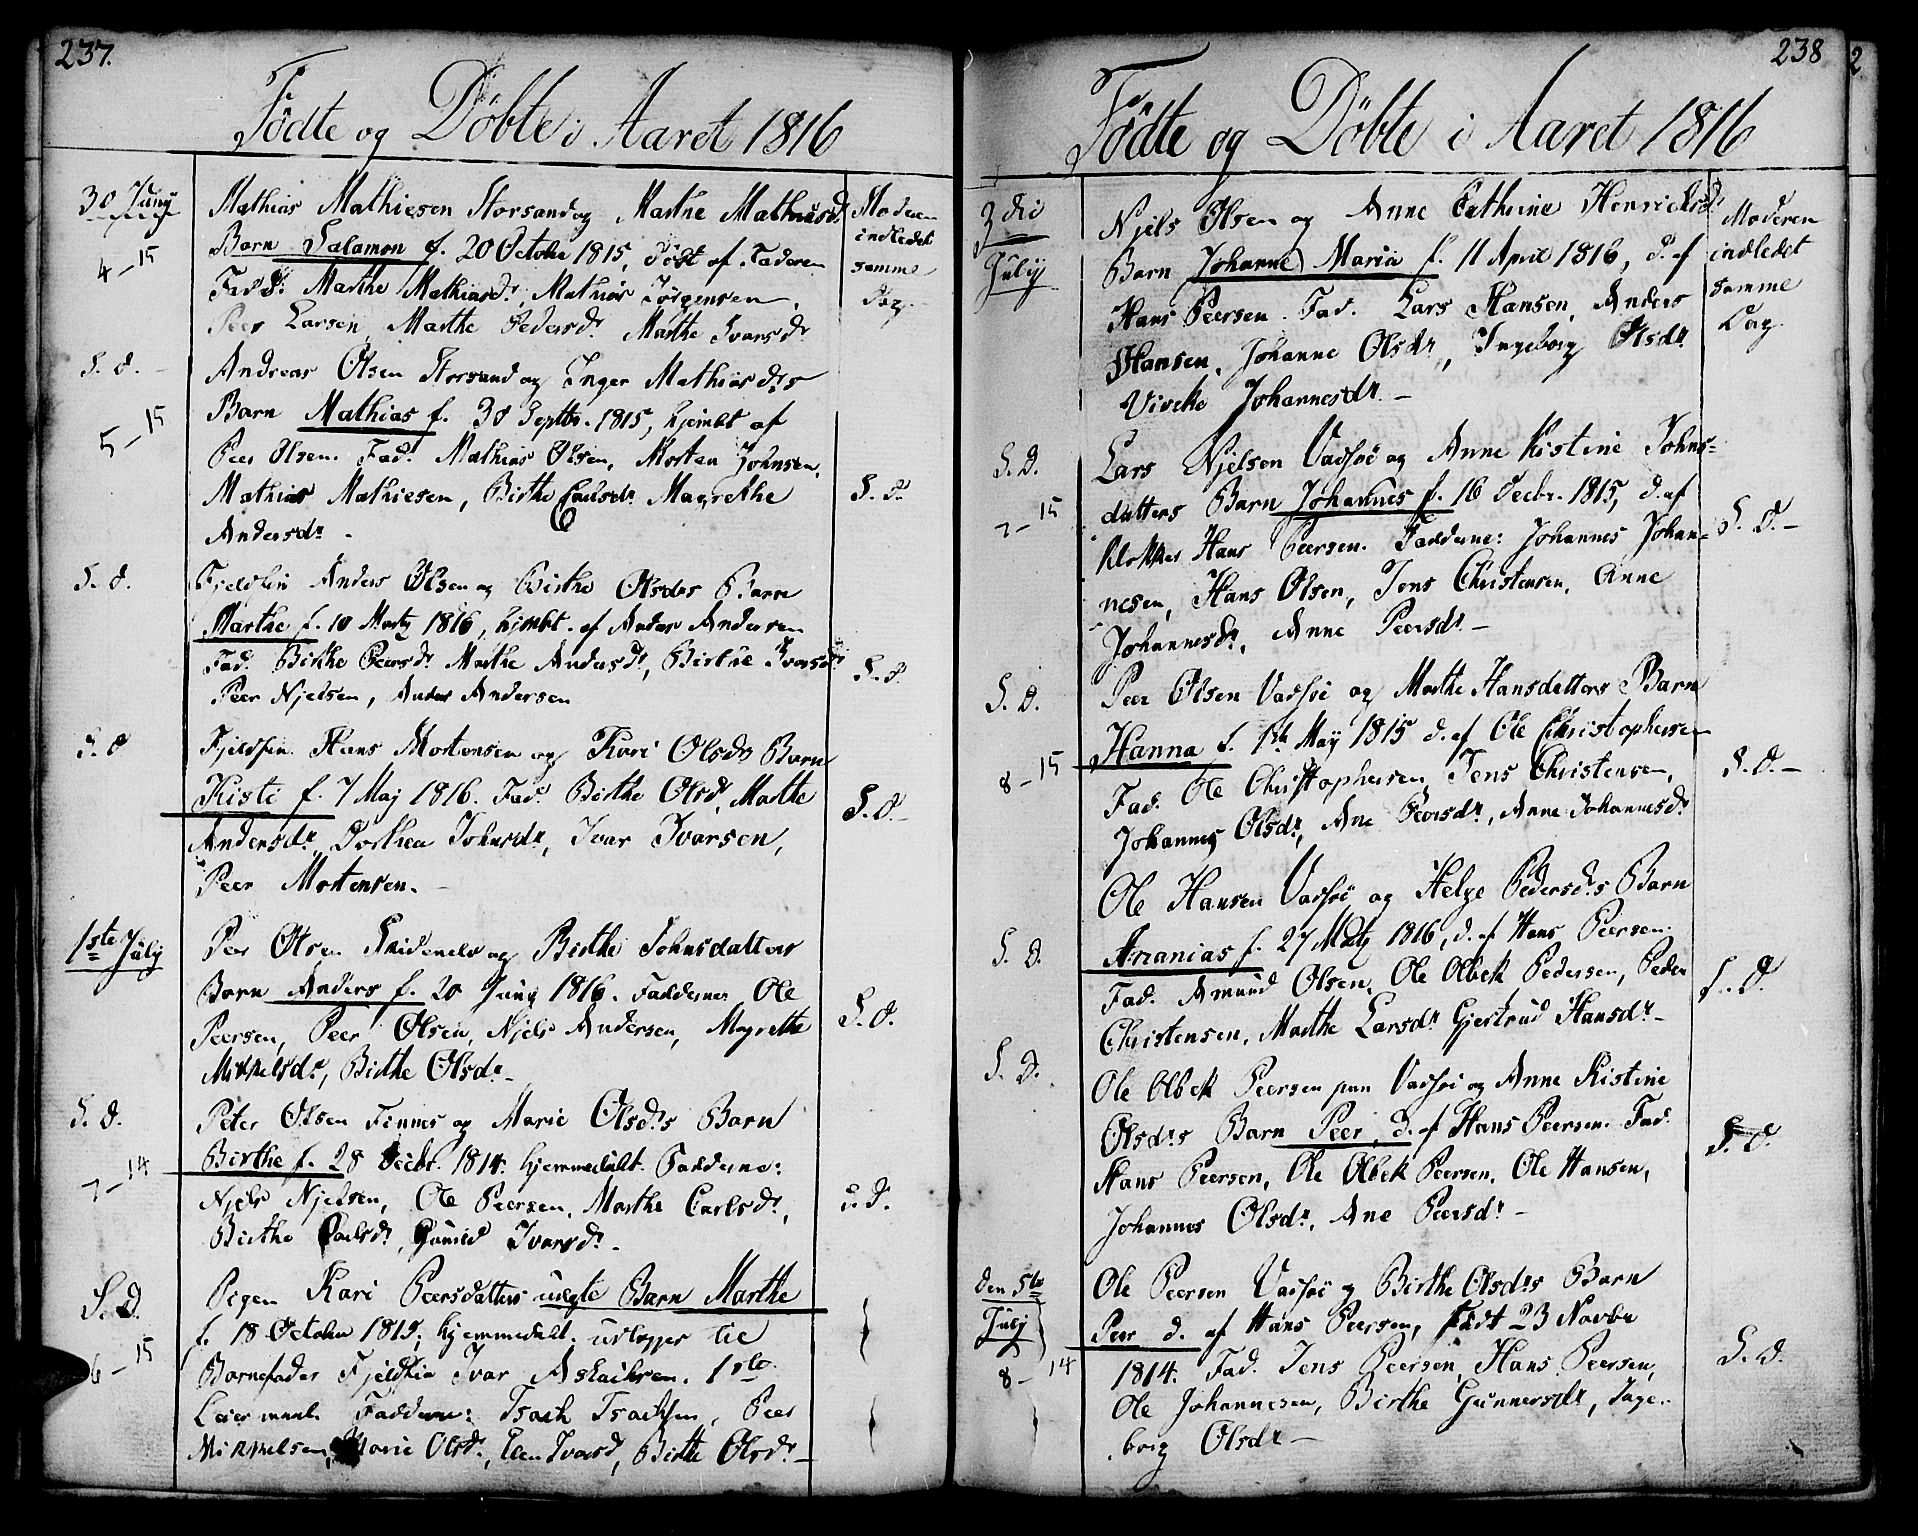 237.
Födte og Döbte i Aaret 1816
30 Juny
4-15
Mathias Mathiesen Storsand og Marthe Mathiasd.
Barn Salamon f. 20 Octobr 1815, döbt af Faderen
Fadd: Marthe Mathiasdr, Mathias Jörgensen,
Peer Larsen, Marthe Pedersdr Marthe Ivarsdr
Moderen
indledet
samme
Dag.
S. d. -
5-15
Andreas Olsen Storsand og Inger Mathiasdrs
Barn Mathias f. 30 Septbr. 1815, hjembt af
Peer Olsen. Fad. Mathias Olsen, Morten Johnsen,
Mathias Mathiesen, Birthe Carlsdr Magrethe
Andersdr -
S. d.
S. d.
Fjeldfin Anders Olsen og Birthe Olsdrs Barn
Marthe f. 10 Martz 1816, hjembt. af Anders Andersen
Fad. Birthe Peersdr Marthe Andersdr, Birthe Ivarsdr
Peer Njelsen, Anders Andersen
S. d.
S. d
Fjeldfin Hans Mortensen og Kari Olsdrs Barn
Kisti f. 7 Maj 1816. Fad. Birthe Olsd. Marthe
Andersdr, Dorthea Johnsdr, Ivar Ivarsen,
Peer Mortensen. -
S. d. -
1ste July
Peer Olsen Skidenelv og Birthe Johnsdatters
Barn Anders f. 20 Juny 1816. Faddernes Ole
Peersen, Peer Olsen, Njels Andersen, Magrethe
Mikkelsdr, Birthe Olsdr -
S. d.
S. d.
7-14
Peter Olsen Finnes og Marie Olsdrs Barn
Birthe f. 28 Decbr. 1814. hjemmedöbt. Fadderne:
Njels Njelsen, Ole Peersen, Marthe Carlsdr,
Birthe Carlsdr, Ivarsdr. -
S. d.
6-15
Pigen Kari Peersdatters uægte Barn Marthe
f. 18 October 1815, hjemmedöbt. udlegges til
Barnefader Fjeldfin Ivar Aslachsen. 1ste
Leiermaal. Fadderne: Isach Isachsen, Peer
Mikkelsen, Marie Olsdr, Elen Ivarsd, Birthe Olsdr -
238
Födte og Döbte i Aaret 1816
3 die
July
Njels Olsen og Anne Cathrine Henrichsd.
Barn Johanne Maria f. 11 April 1816, d. af
Hans Peersen. Fad. Lars Hansen, Anders
Hansen, Johanne Olsdr, Ingeborg Olsdr
Viveke Johannesdr. -
Moderen
indledet
samme
Dag
S. D.
7-15
Lars Njelsen Vadsöe og Anne Kistine Johns-
datters Barn Johannes f. 16 Decbr. 1815, d. af
klokker Hans Peersen. Fadderne: Johannes Johan-
nesen, Hans Olsen, Jens Christensen, Anne
Johannesdr, Anne Peersdr -
S. D. -
S. D.
8-15
Peer Olsen Vadsöe og Marthe Hansdatters Barn
Hanna f. 1ste May 1815 d. af Ole Christophersen
Fad. Ole Christophersen, Jens Christensen,
Johannes Olsdr, Ane Peersdr, Anne Johannesdr
S. D. -
S. d.
Ole Hansen Vadsöe og Helge Pedersdrs Barn
Annanias f. 27 Martz 1816, d. af Hans Peersen.
Fad. Amund Olsen, Ole Olbek Pedersen, Peder
Christensen, Marthe Larsdr Gjertrud Hansdr -
S. D.
S. D.
Ole Olbek Peersen pan Vadsöe og Anne Kistine
Olsdrs Barn Peer, d. af Hans Peersen. Fad.
Hans Peersen, Ole Olbek Peersen, Ole Hansen,
Johannes Olsdr, Ane Peersdr -
S. D.
den 5te
July
8-14
Ole Peersen Vadsöe og Birthe Olsdrs Barn
Peer d. af Hans Peersen, Födt 23 Novbr
1814. Fad. Jens Peersen, Hans Peersen,
Ole Johannesen, Birthe Gunnersdr, Inge-
borg Olsdr -
S. d.
2